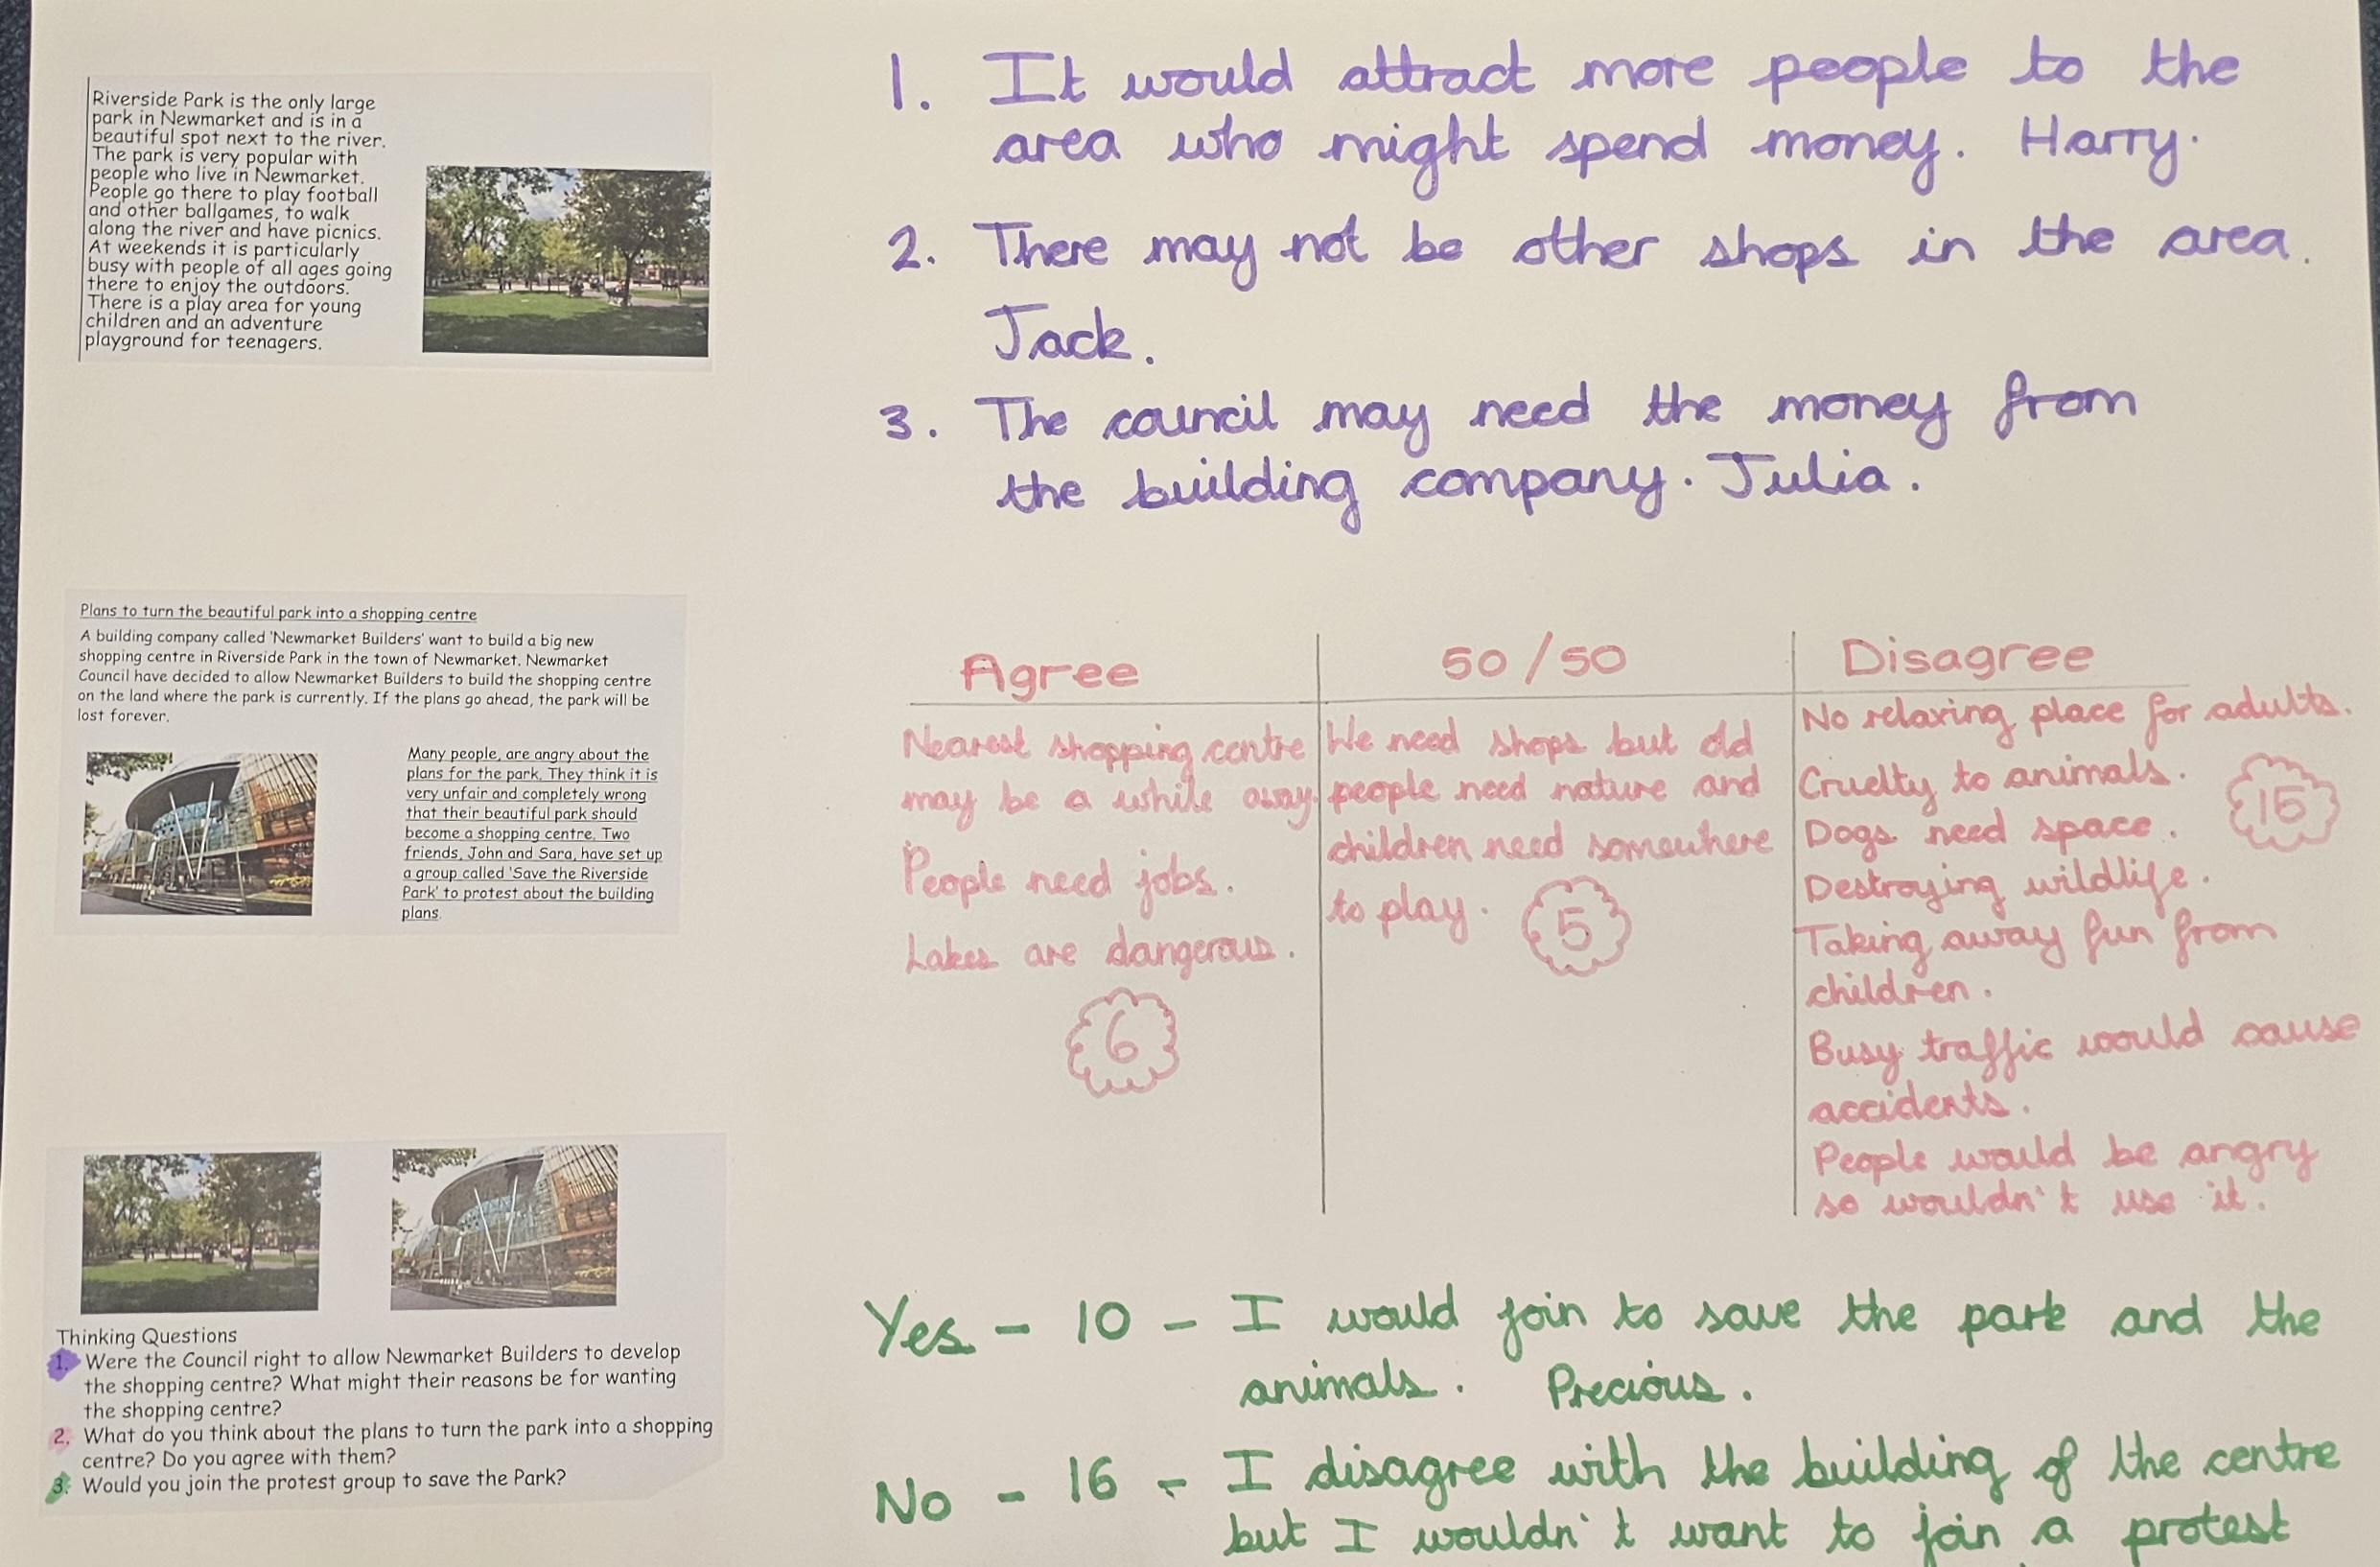 Riverside Park is the only large
park in Newmarket and is in a
beautiful spot next to the river.
The park is very popular with
people who live in Newmarket.
People go there to play football
and other ballgames, to walk
along the river and have picnics.
At weekends it is particularly
busy with people of all ages going
there to enjoy the outdoors.
There is a play area for young
children and an adventure
playground for teenagers.
1. It would attract more people to the
area who might spend money. Harry.
2. There may not be other shops in the area.
Jack.
3. The council may need the money from
the building company. Julia.
Plans to turn the beautiful park into a shopping centre
A building company called 'Newmarket Builders' want to build a big new
shopping centre in Riverside Park in the town of Newmarket. Newmarket
Council have decided to allow Newmarket Builders to build the shopping centre
on the land where the park is currently. If the plans go ahead, the park will be
lost forever.
Many people, are angry about the
plans for the park. They think it is
very unfair and completely wrong
that their beautiful park should
become a shopping centre. Two
friends, John and Sara, have set up
a group called 'Save the Riverside
Park' to protest about the building
plans.
Agree
Nearest shopping centre
may be a while away.
People need jobs.
Lakes are dangerous.
6
50/50
We need shops but old
people need nature and
children need somewhere
to play.
5
Disagree
No relaxing place for adults.
Cruelty to animals.
15
Dogs need space.
Destroying wildlife.
Taking away fun from
children.
Busy traffic would cause
accidents.
People would be angry
so wouldn't use it.
Thinking Questions
1. Were the Council right to allow Newmarket Builders to develop
the shopping centre? What might their reasons be for wanting
the shopping centre?
2. What do you think about the plans to turn the park into a shopping
centre? Do you agree with them?
3. Would you join the protest group to save the Park?
Yes - 10 - I would join to save the park and the
animals. Precious.
No - 16 - I disagree with the building of the centre
but I wouldn't want to join a protest